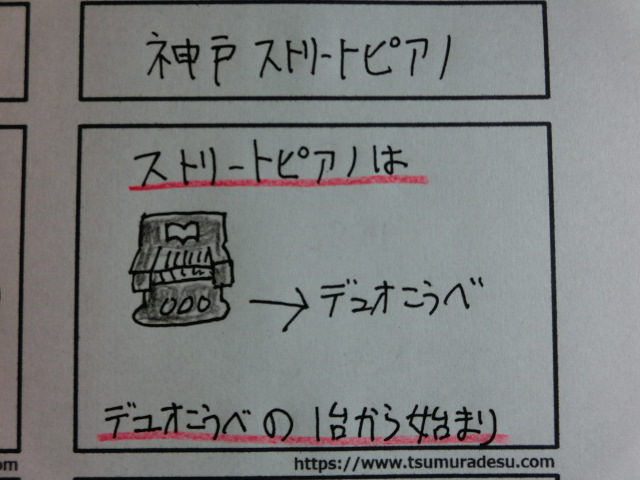 神戸 ストリートピアノ
ストリートピアノは
→ デュオこうべ
デュオこうべの1台から始まり
https://www.tsumuradesu.com